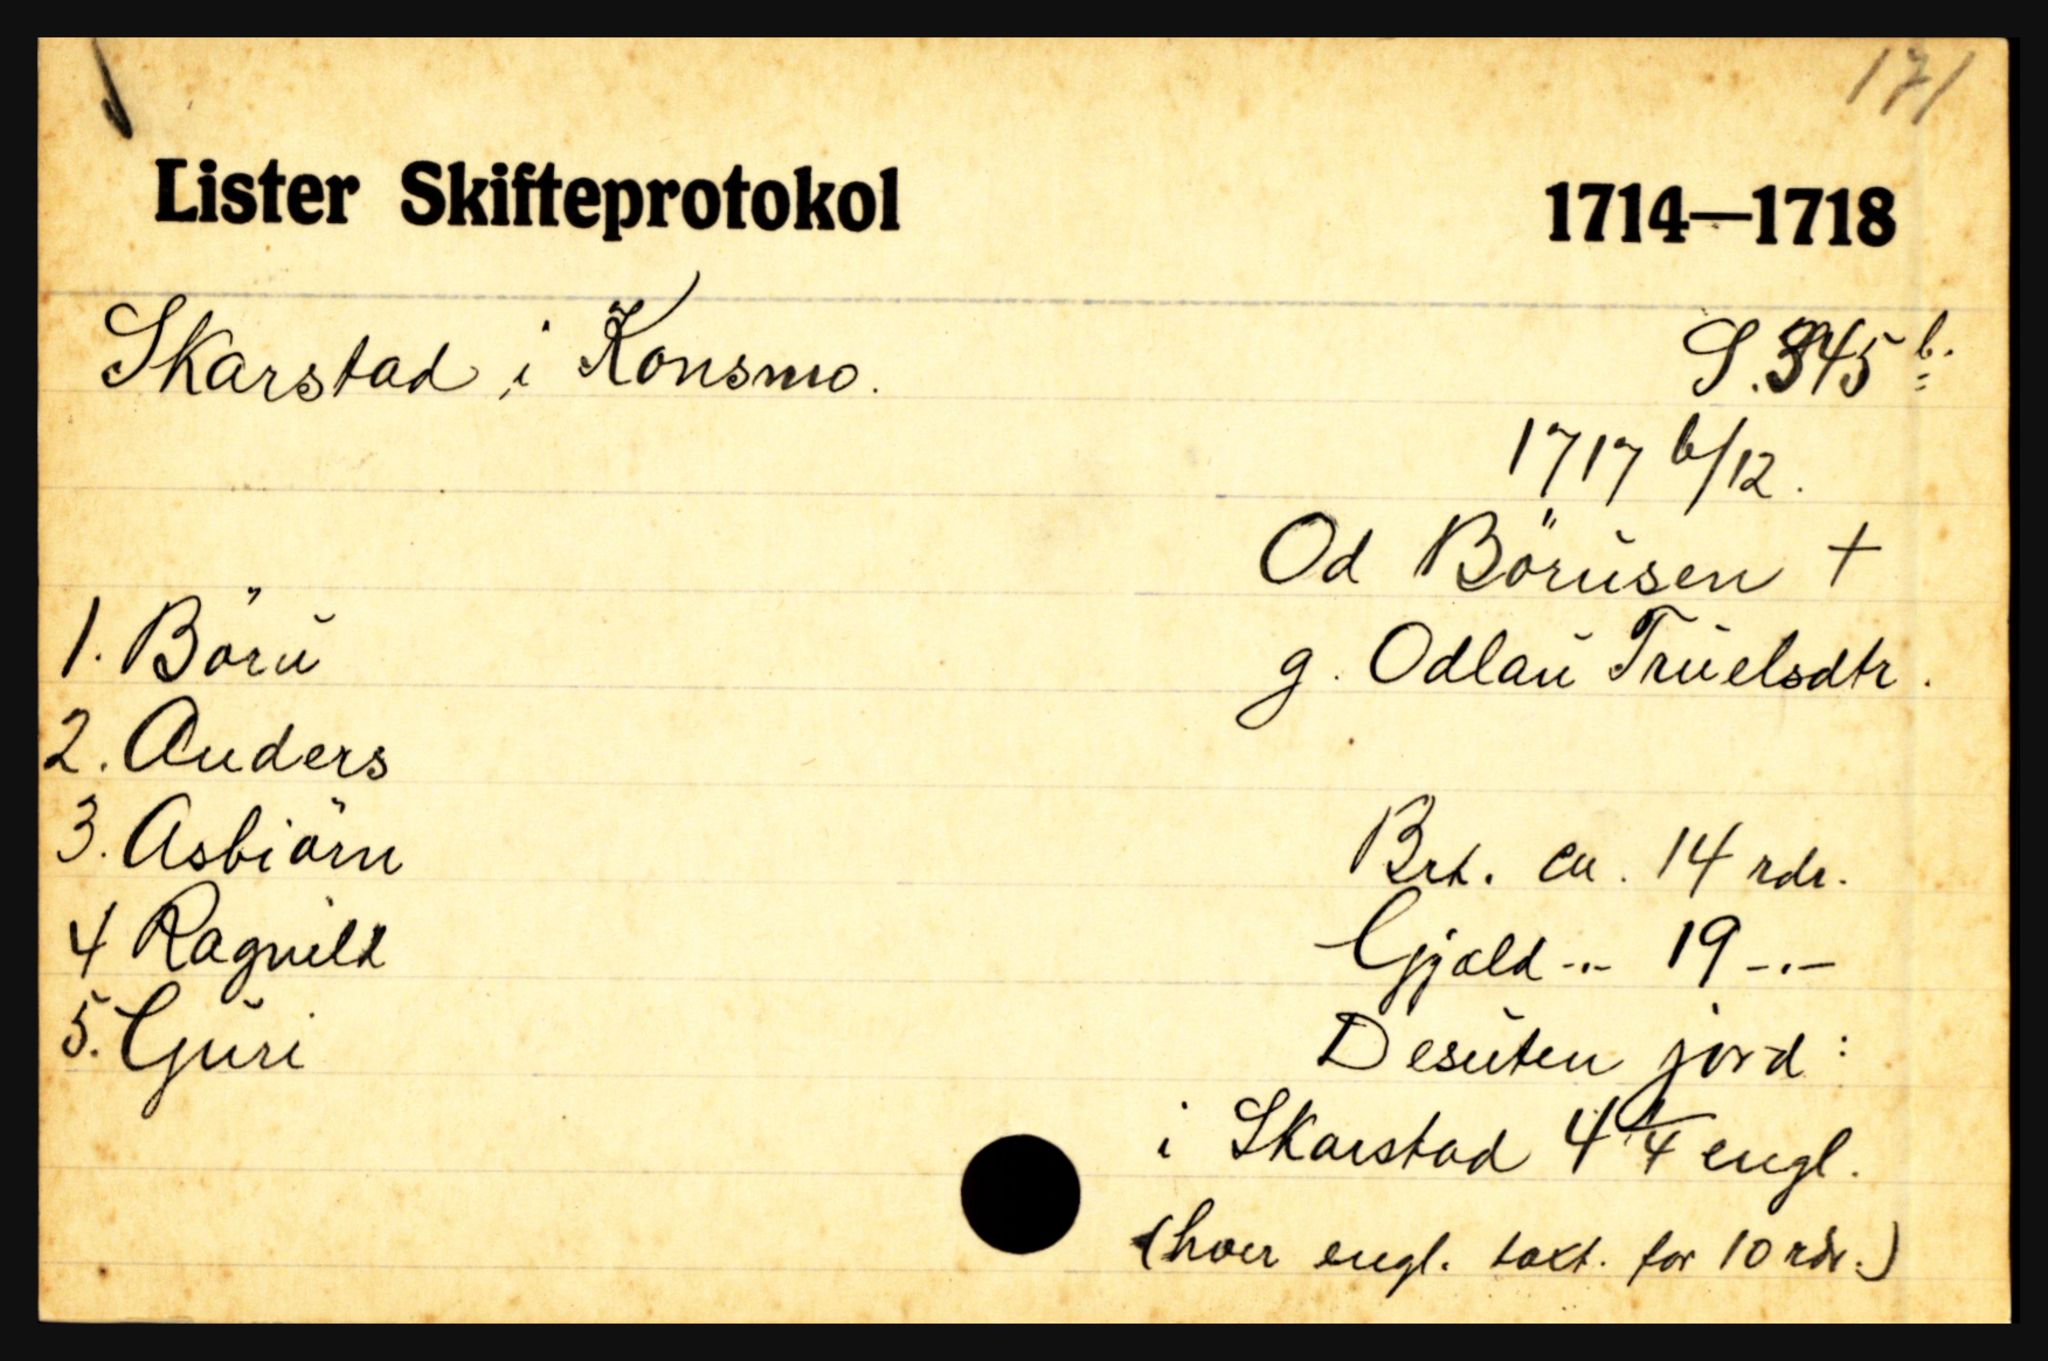 171
Lister Skifteprotokol 1714—1718
Skarstad i Konsmo. S. 345 b.
1717 6/12.
Od Börŭsen +
1. Börŭ
g. Odlaŭ Trŭelsdtr.
2. Anders
3. Asbiörn
Brt. ca. 14 rdr.
4 Ragnild
Gjæld -.- 19 -.-
5. Gŭri
Desŭten jord:
i Skarstad 4 1/4 engl.
(hver engl. taxt. for 10 rdr.)